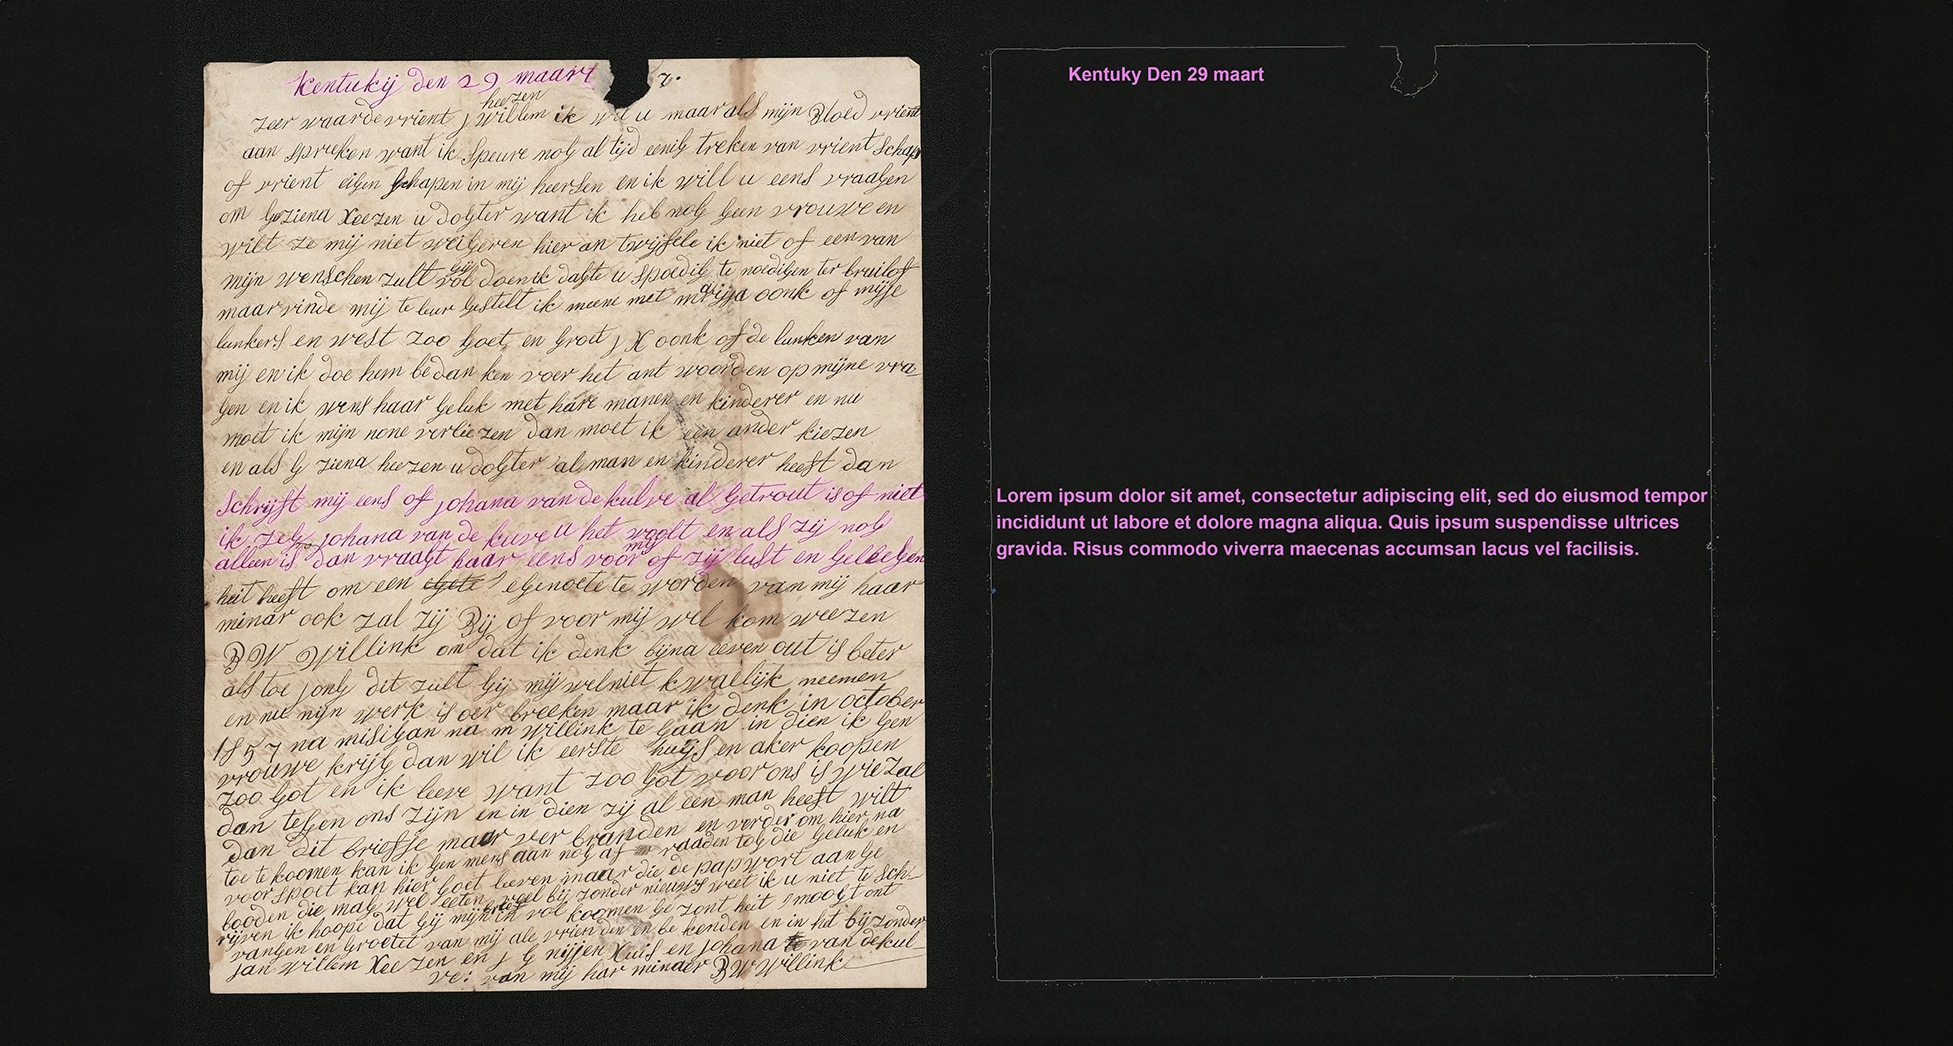 Kentukij den 29 maart 7.
heezen
zeer waarde vrient j Willem ik wil u maar als mijn Bloed vrient
aan spreken want ik speure nog al tijd eenig treken van vrient schap
of vrient eigen schapen in mij heersen en ik will u eens vraagen
om Geziena Heezen u dogter want ik heb nog geen vrouwe en
wilt ze mij niet weigeren hier an twijfele ik niet of een van
mijn wenschen zult gij vol doen ik dagte u spoedig te noedigen ter bruilof
maar vinde mij te leur gestelt ik meene met mrijja oonk of mijje
lunkers en west zoo goet en groit j H oonk of de lunken van
mij en ik doe hem bedan ken voer het ant woorden op mijne vra
gen en ik wens haar geluk met hare manen en kinderer en nu
moet ik mijn none verliezen dan moet ik een ander kiezen
en als g ziena heezen u dogter al man en kinderer heeft dan
schrijft mij eens of johana van de kulve al getrout is of niet
ik zeg johana van de kuve u het woolt en als zij nog
alleen is dan vraagt haar eens voor mij of zij lust en gelegen
heit heeft om een egenoete te worden van mij haar
minar ook zal zij Bij of voor mij wel kom weezen
BW Willink om dat ik denk bijna eeven out is beter
als toe jong dit zult gij mij wel niet kwallijk neemen
en nu mijn werk is oer breeken maar ik denk in october
1857 na misigan na m Willink te gaan in dien ik gen
vrouwe krijg dan wil ik eerste huijs en aker koopen
zoo got en ik leeve want zoo got voor ons is wie zal
dan tegen ons zijn en in dien zij al een man heeft wilt
dan dit briefje maar ver branden en verder om hier na
toe te koomen kan ik gen mens aan nog af raaden tog die geluk en
voor spoet kan hier goet leeven maar die de pap wort aan ge
booden die mag wel eeten veel bij zonder nieuws weet ik u niet te sch
rijven ik hoope dat gij mijn brief in vol koomen ge zont heit moogt ont
vangen en grootet van mij ale vrienden en be kenden en in het bij zonder
jan willem Heezen en j g nijjen Huis en johana van de kul
ve: van mij har minaer BW Willink
Kentuky Den 29 maart
Lorem ipsum dolor sit amet, consectetur adipiscing elit, sed do eiusmod tempor
incididunt ut labore et dolore magna aliqua. Quis ipsum suspendisse ultrices
gravida. Risus commodo viverra maecenas accumsan lacus vel facilisis.